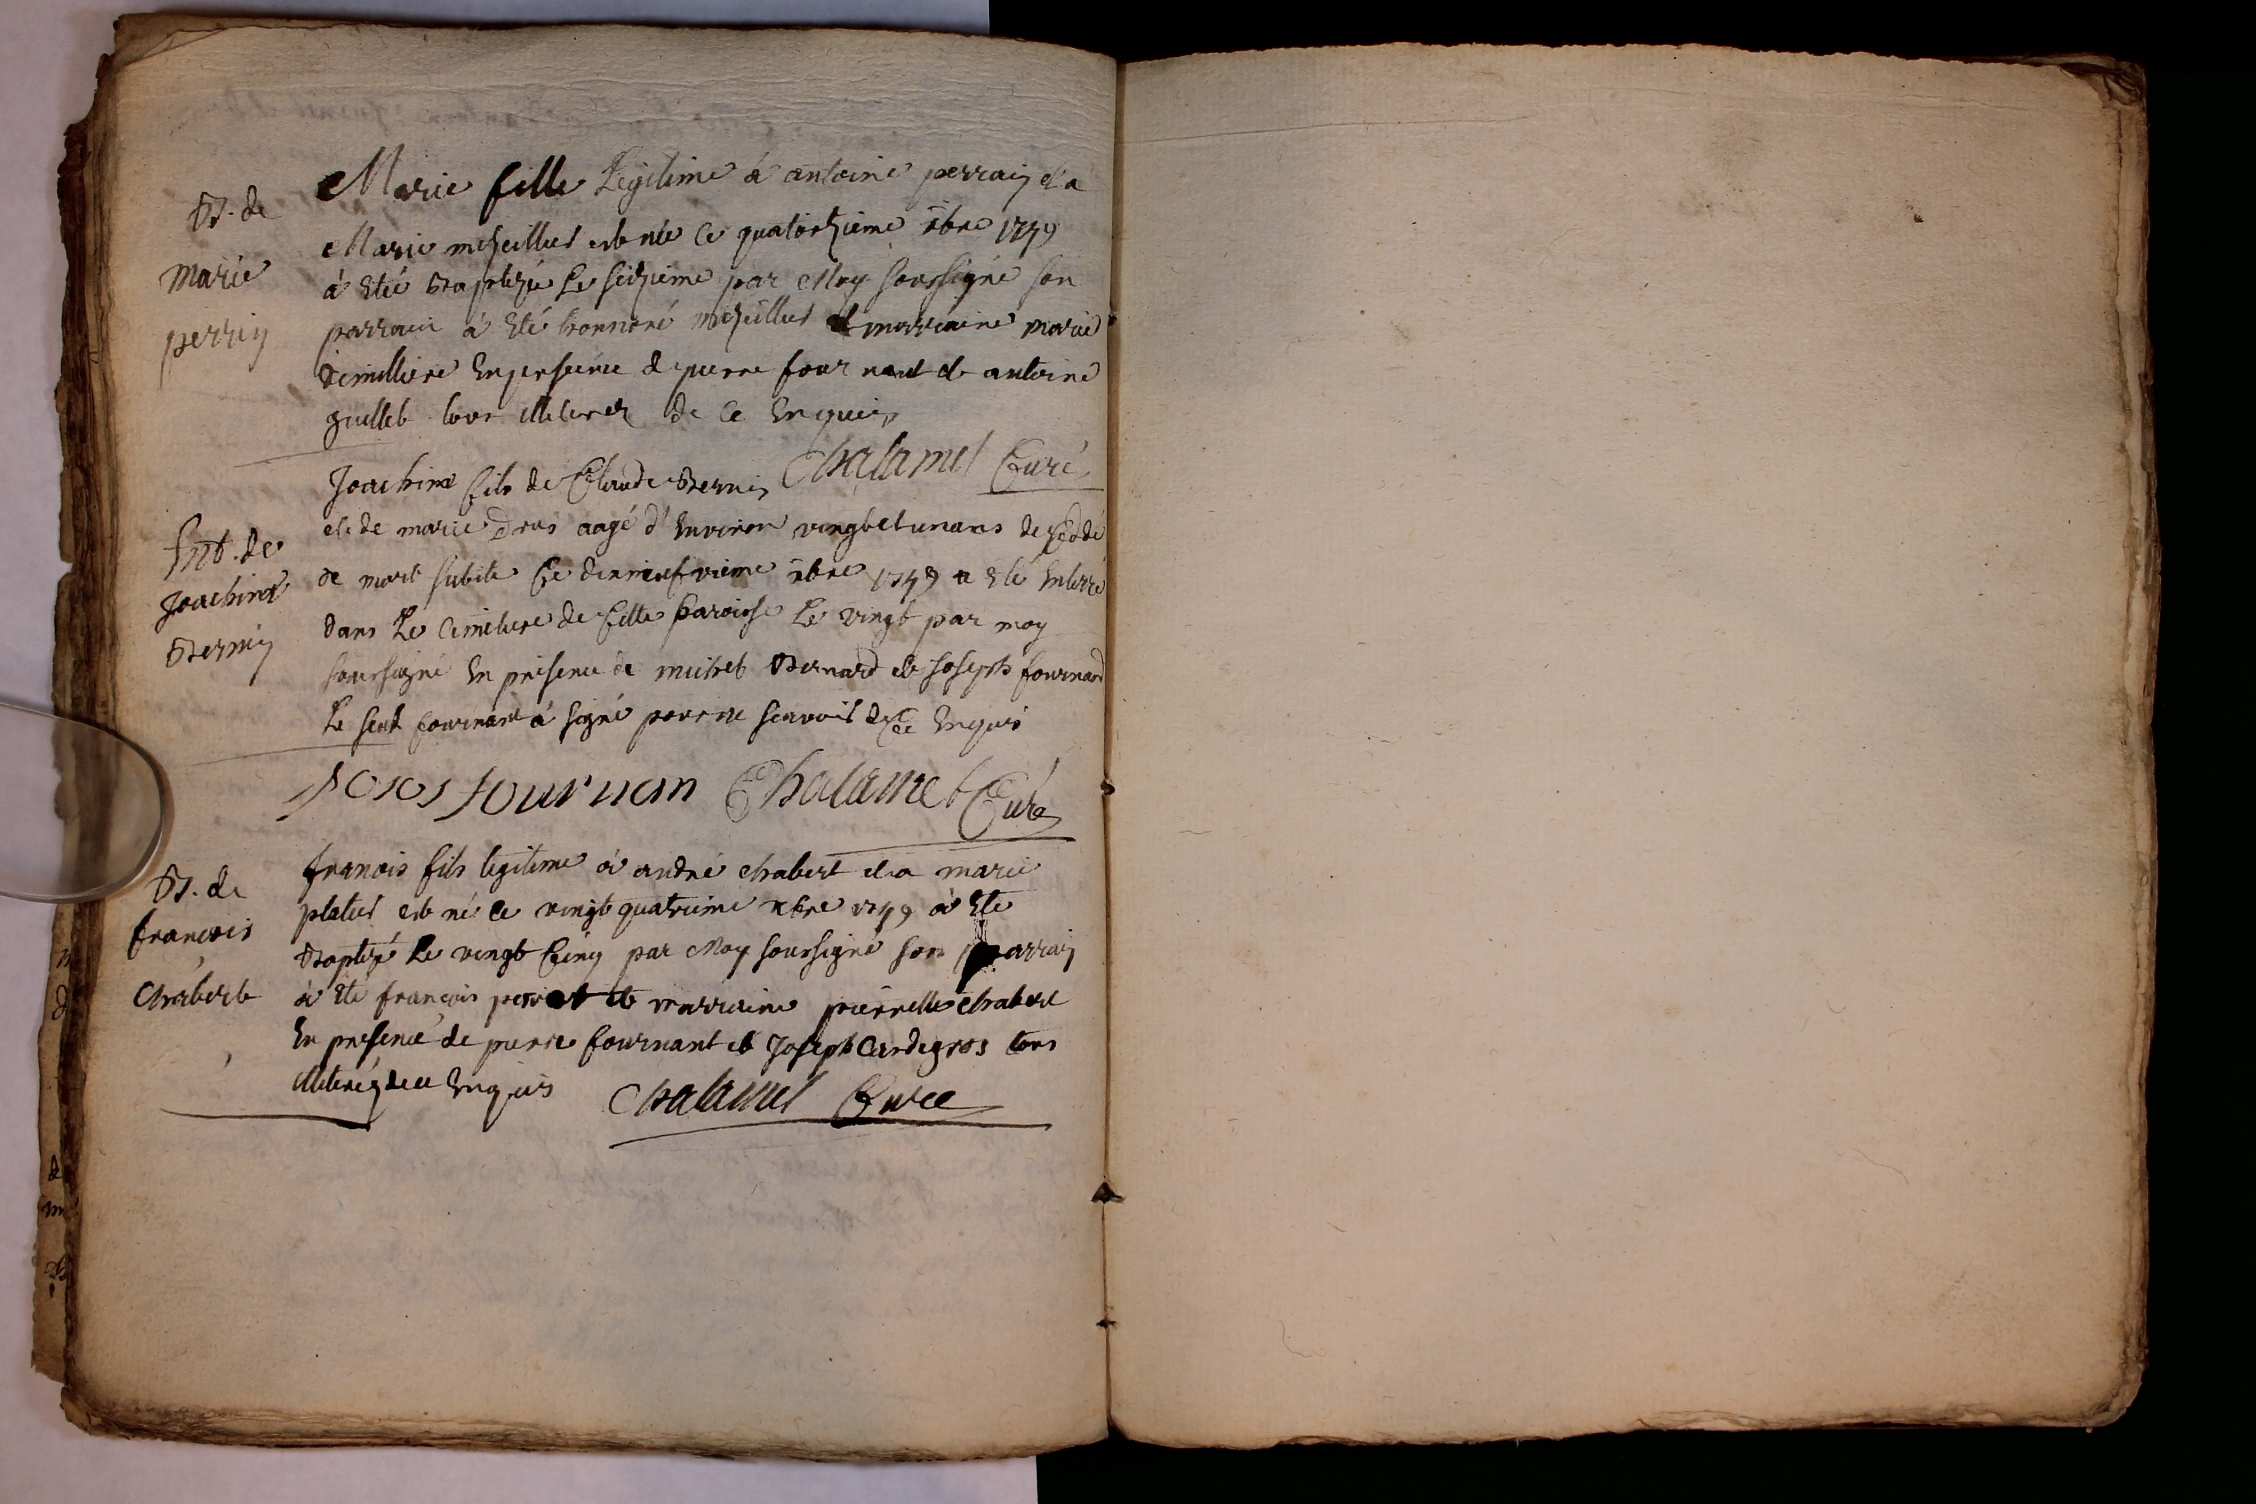 Bt. de
marie
perrin
Marie fille Legitime à antoine perrain et a
Marie mezeillies est née Ce quatorzieme xbre 1749
à eté Baptizée Le seizieme par Moy soussigné son
parrain à eté honnoré et marraine marie
En presence de pierre fournant et antoine
guillet tous illiterez de Ce Enquis
Chalamel Curé
Ent. de
Joachim
Bernin
Joachim fils de Claude Bernin
et de marie Dros aagé d'Environ vingt et un ans decedé
de mort subite Ce dixneufvieme xbre 1749 a eté Enterré
dans Le Cimetiere de Cette paroisse Le vingt par moy
soussigné En presence de michel Bernard et Joseph fournand
Le seul fournant à signé pour ne scavoir de Ce Enquis
fournan Chalamel Curé
Bt. de
francois
Chabert
francois fils legitime à andré chabert et a marie
platel est né le vingt quatrieme xbre 1749 à eté
Baptizé Le vingt Cinq par Moy soussigné son parrain
à eté françois perret et marraine pierrette chabert
En presence de pierre fournant et Joseph Cardegros tous
illiteréz de ce Enquis Chalamel Curé